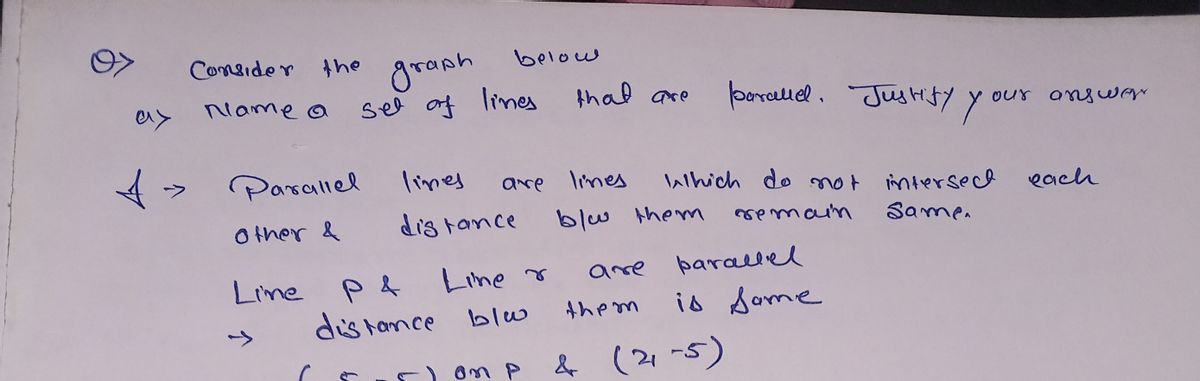 Q> Consider the graph below
a> Name a set of lines that are parallel. Justify your answer
A → Parallel lines are lines which do not intersect each
other & distance b/w them remain same.
Line p & Line r are parallel
→ distance b/w them is same
on p & (2, -5)